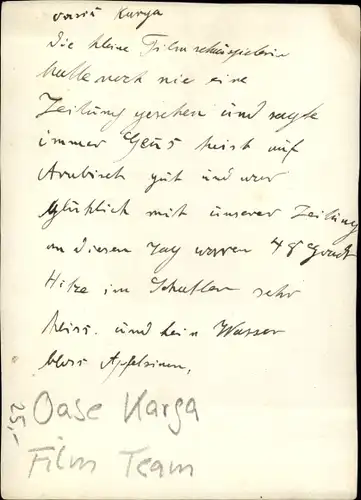 Karga
Die kleine Filmschauspielerin
hatte noch nie eine
Zeitung gesehen und sagte
immer heist auf
Arabisch gut und war
glüklich mit unserer Zeitung
an diesen Tag waren 48 Gradt
Hitze im Schatten sehr
heiss. und kein Wasser
bloss Apfelsinen,
Oase Karga
Film Team
25,-